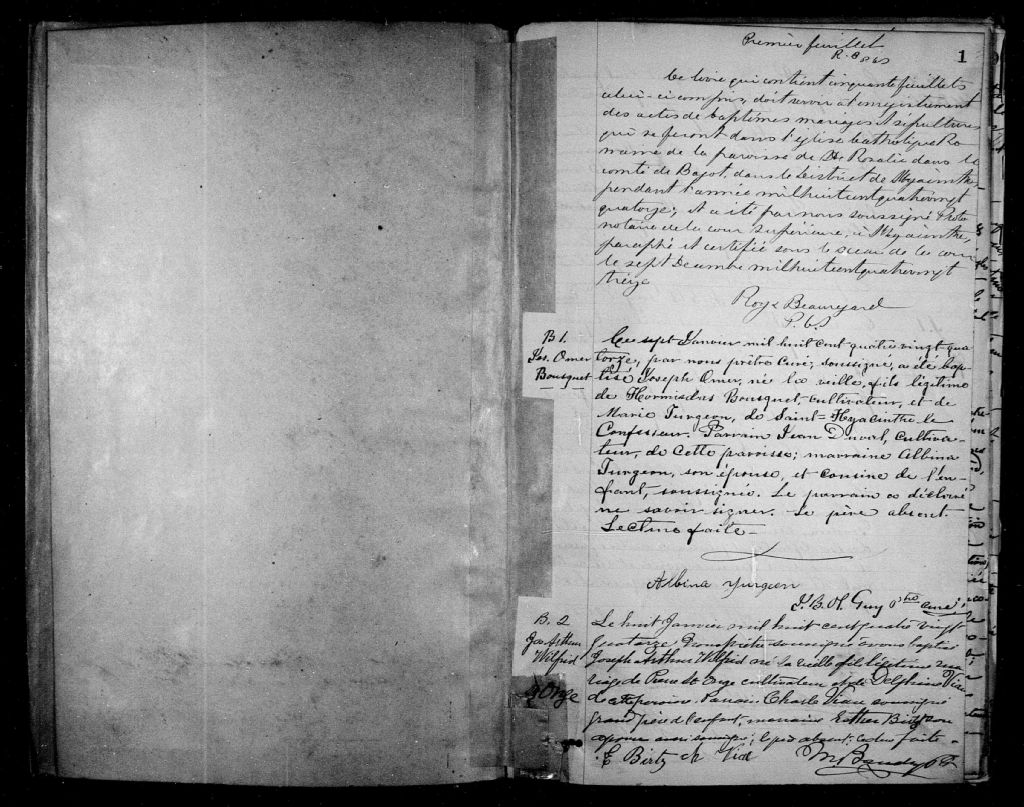 Premier feuillet
1
Ce livre qui contient cinquante feuillets
celui-ci compris, doit servir à l'enregistrement
des actes de baptêmes mariages et sépultures
qui se feront dans l'église Catholique Ro
maine de la paroisse de Ste Rosalie dans le
comté de Bagot, dans le district de St Hyacinthe
pendant l'année mil huit cent quatre vingt
quatorze; et a été par nous soussigné Proto
notaire de la cour Supérieure, à St Hyacinthe,
paraphé et certifié sous le sceau de la cour
le sept Decembre mil huit cent quatre vingt
treize
Roy & Beauregard
P.C.S
B 1.
Jos. Omer
Bousquet
Ce sept Janvier mil huit cent quatre vingt qua
torze, par nous prêtre curé, soussigné, a été bap
tisé Joseph Omer, né la veille, fils légitime
de Hormisdas Bousquet, cultivateur, et de
Marie Turgeon, de Saint=Hyacinthe le
Confesseur. Parrain Jean Duval, cultiva=
teur, de cette paroisse; marraine Albina
Turgeon, son épouse, et cousine de l'en=
fant, soussignée. Le parrain a déclaré
ne savoir signer. Le père absent.
Lecture faite –
Albina Turgeon
J. B. H. Guy Ptre curé
B. 2
Jos Arthur
Wilfrid
St Onge
Le huit Janvier mil huit cent quatre vingt
quatorze, Nous prêtre soussigné avons baptisé
Joseph Arthur Wilfrid né la veille fils légitime du ma
riage de Pierre St Onge cultivateur et de Delphine Viau
de cette paroisse. Parrain Charles Viau soussigné
grand père de l'enfant, marraine Esther Birtz son
épouse aussi soussignée; le père absent. Lecture faite.
E Birtz Ch Viau